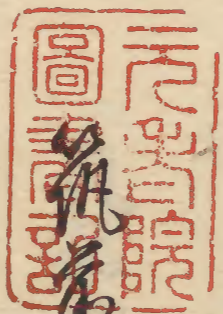 元老院
圖書記
筑